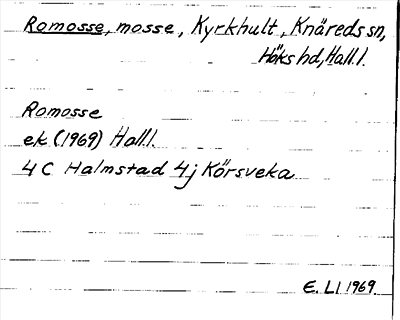 Romosse, mosse, Kyrkhult, Knäreds sn,
Höks hd, Hall.
Romosse
ek (1969) Hall.
4 C Halmstad 4j Körsveka
E. Ll 1969